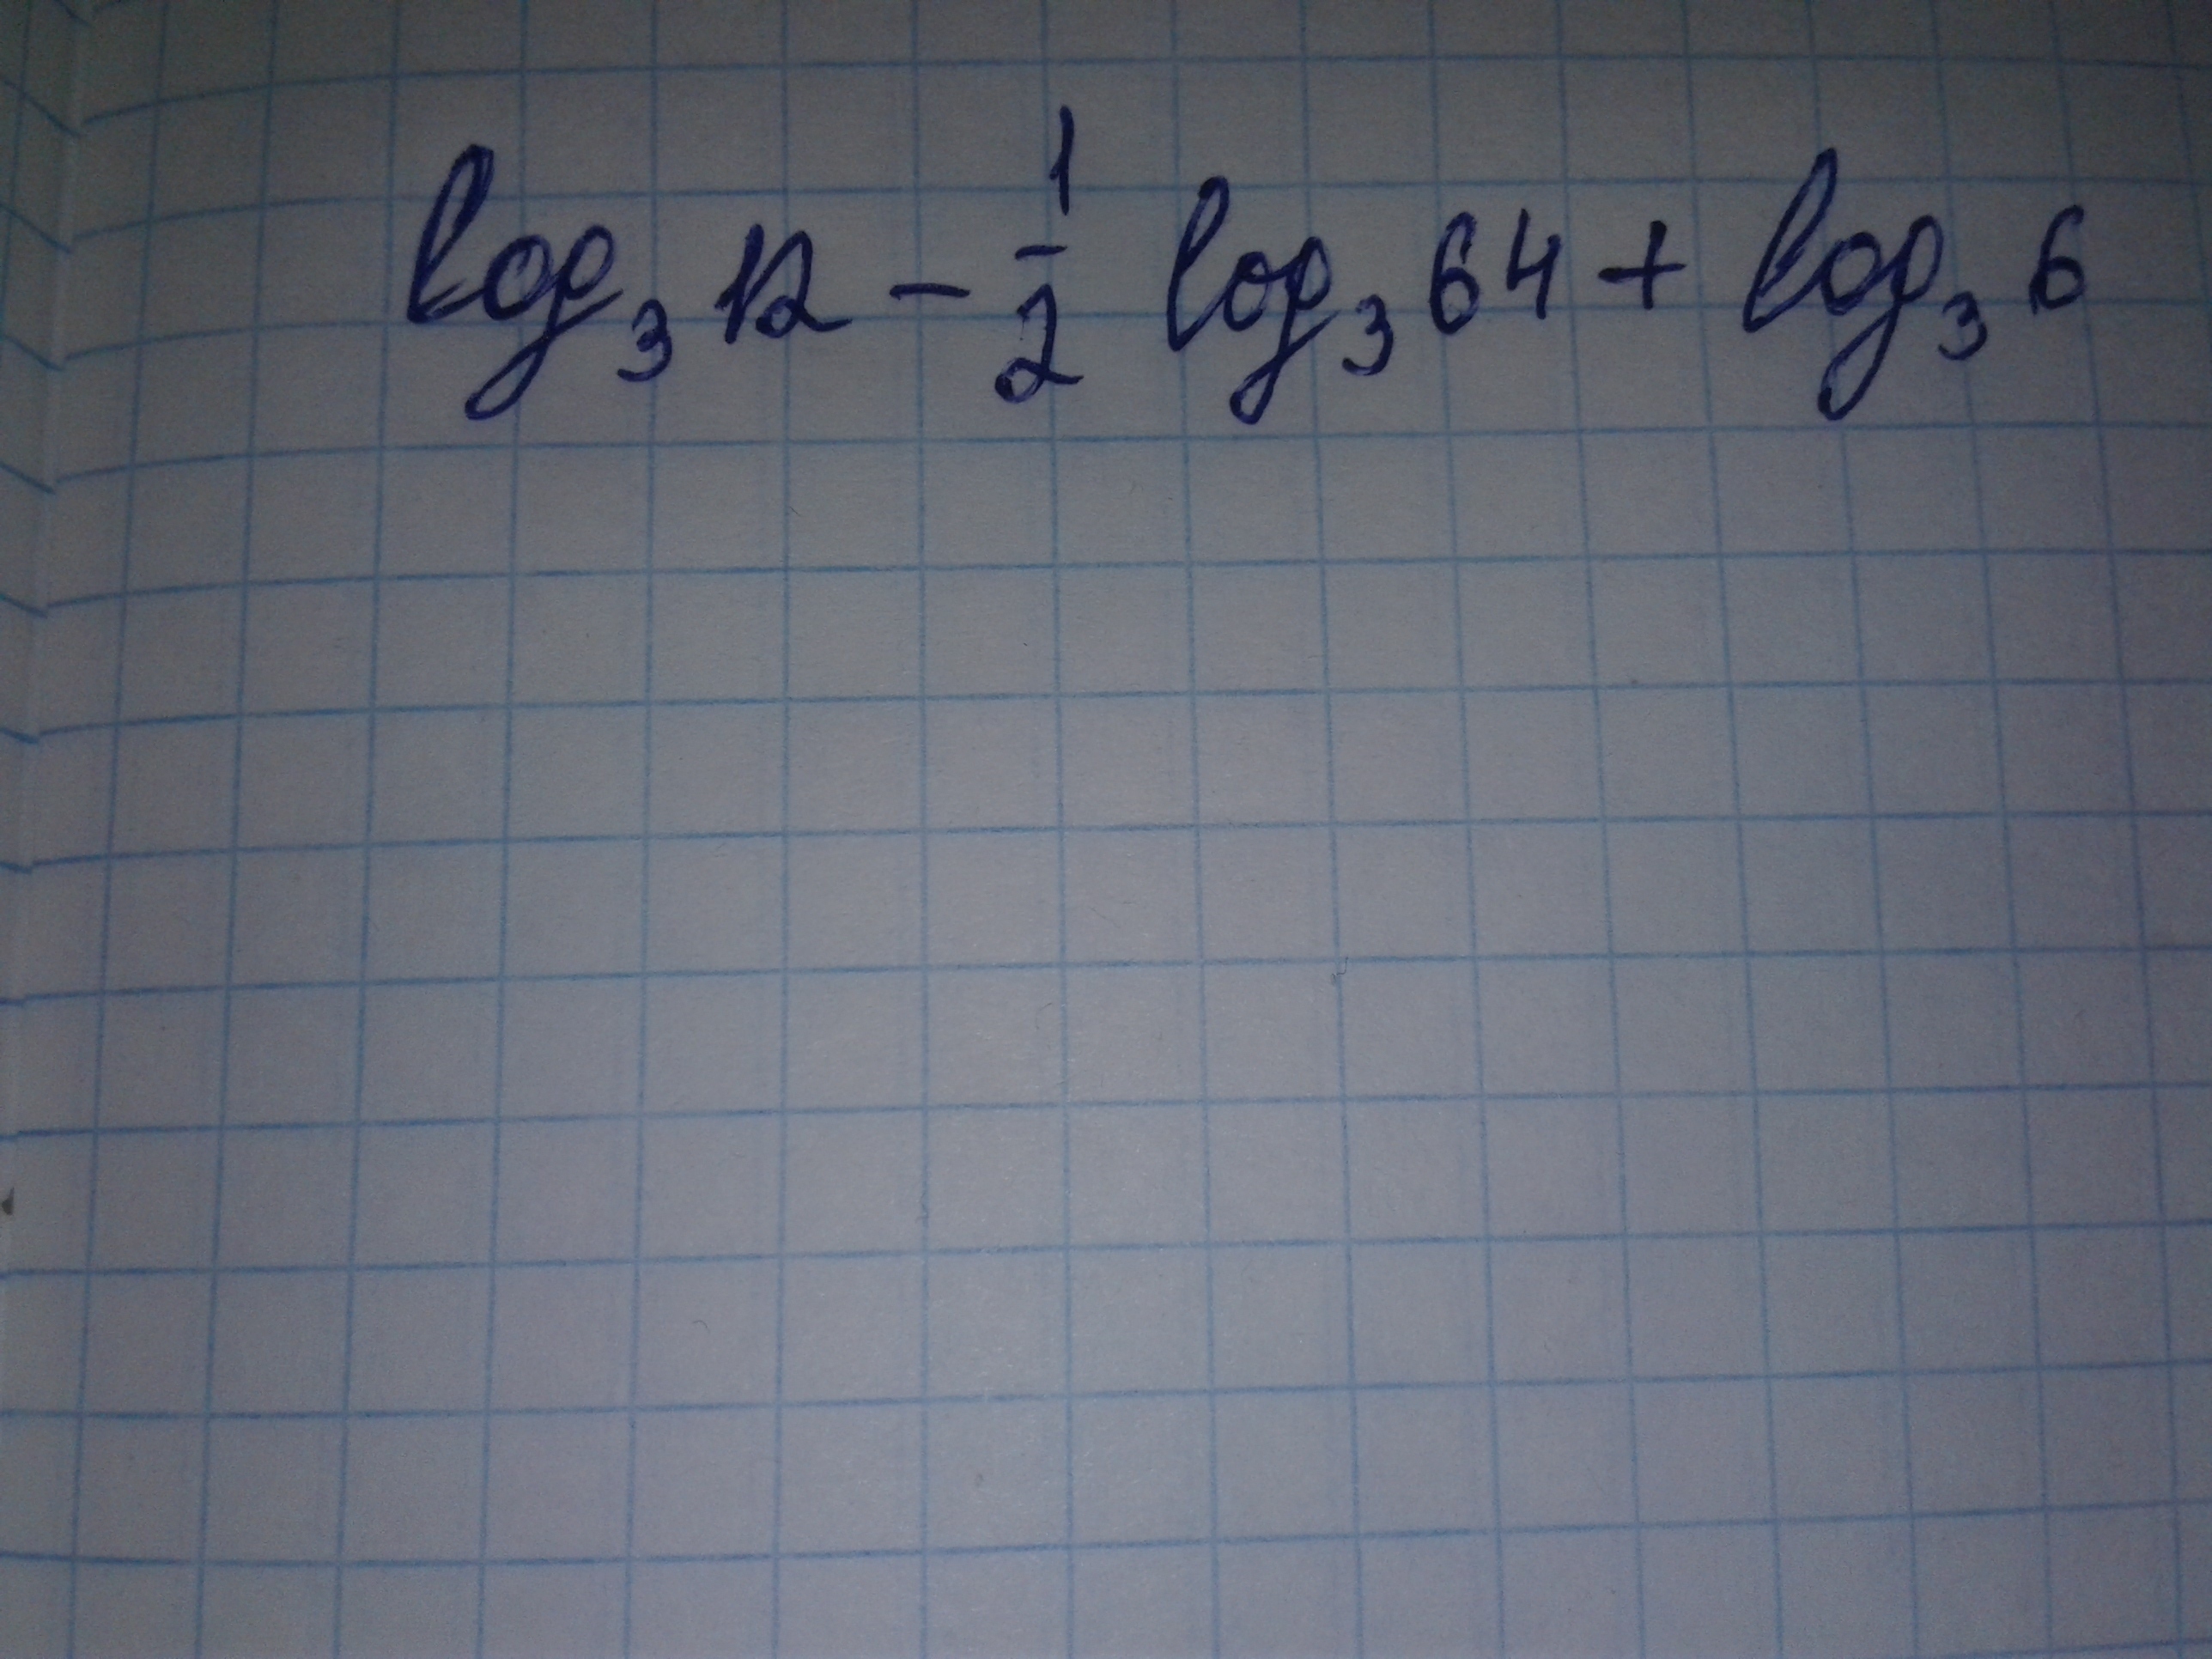 log₃ 12 − 1/2 log₃ 64 + log₃ 6